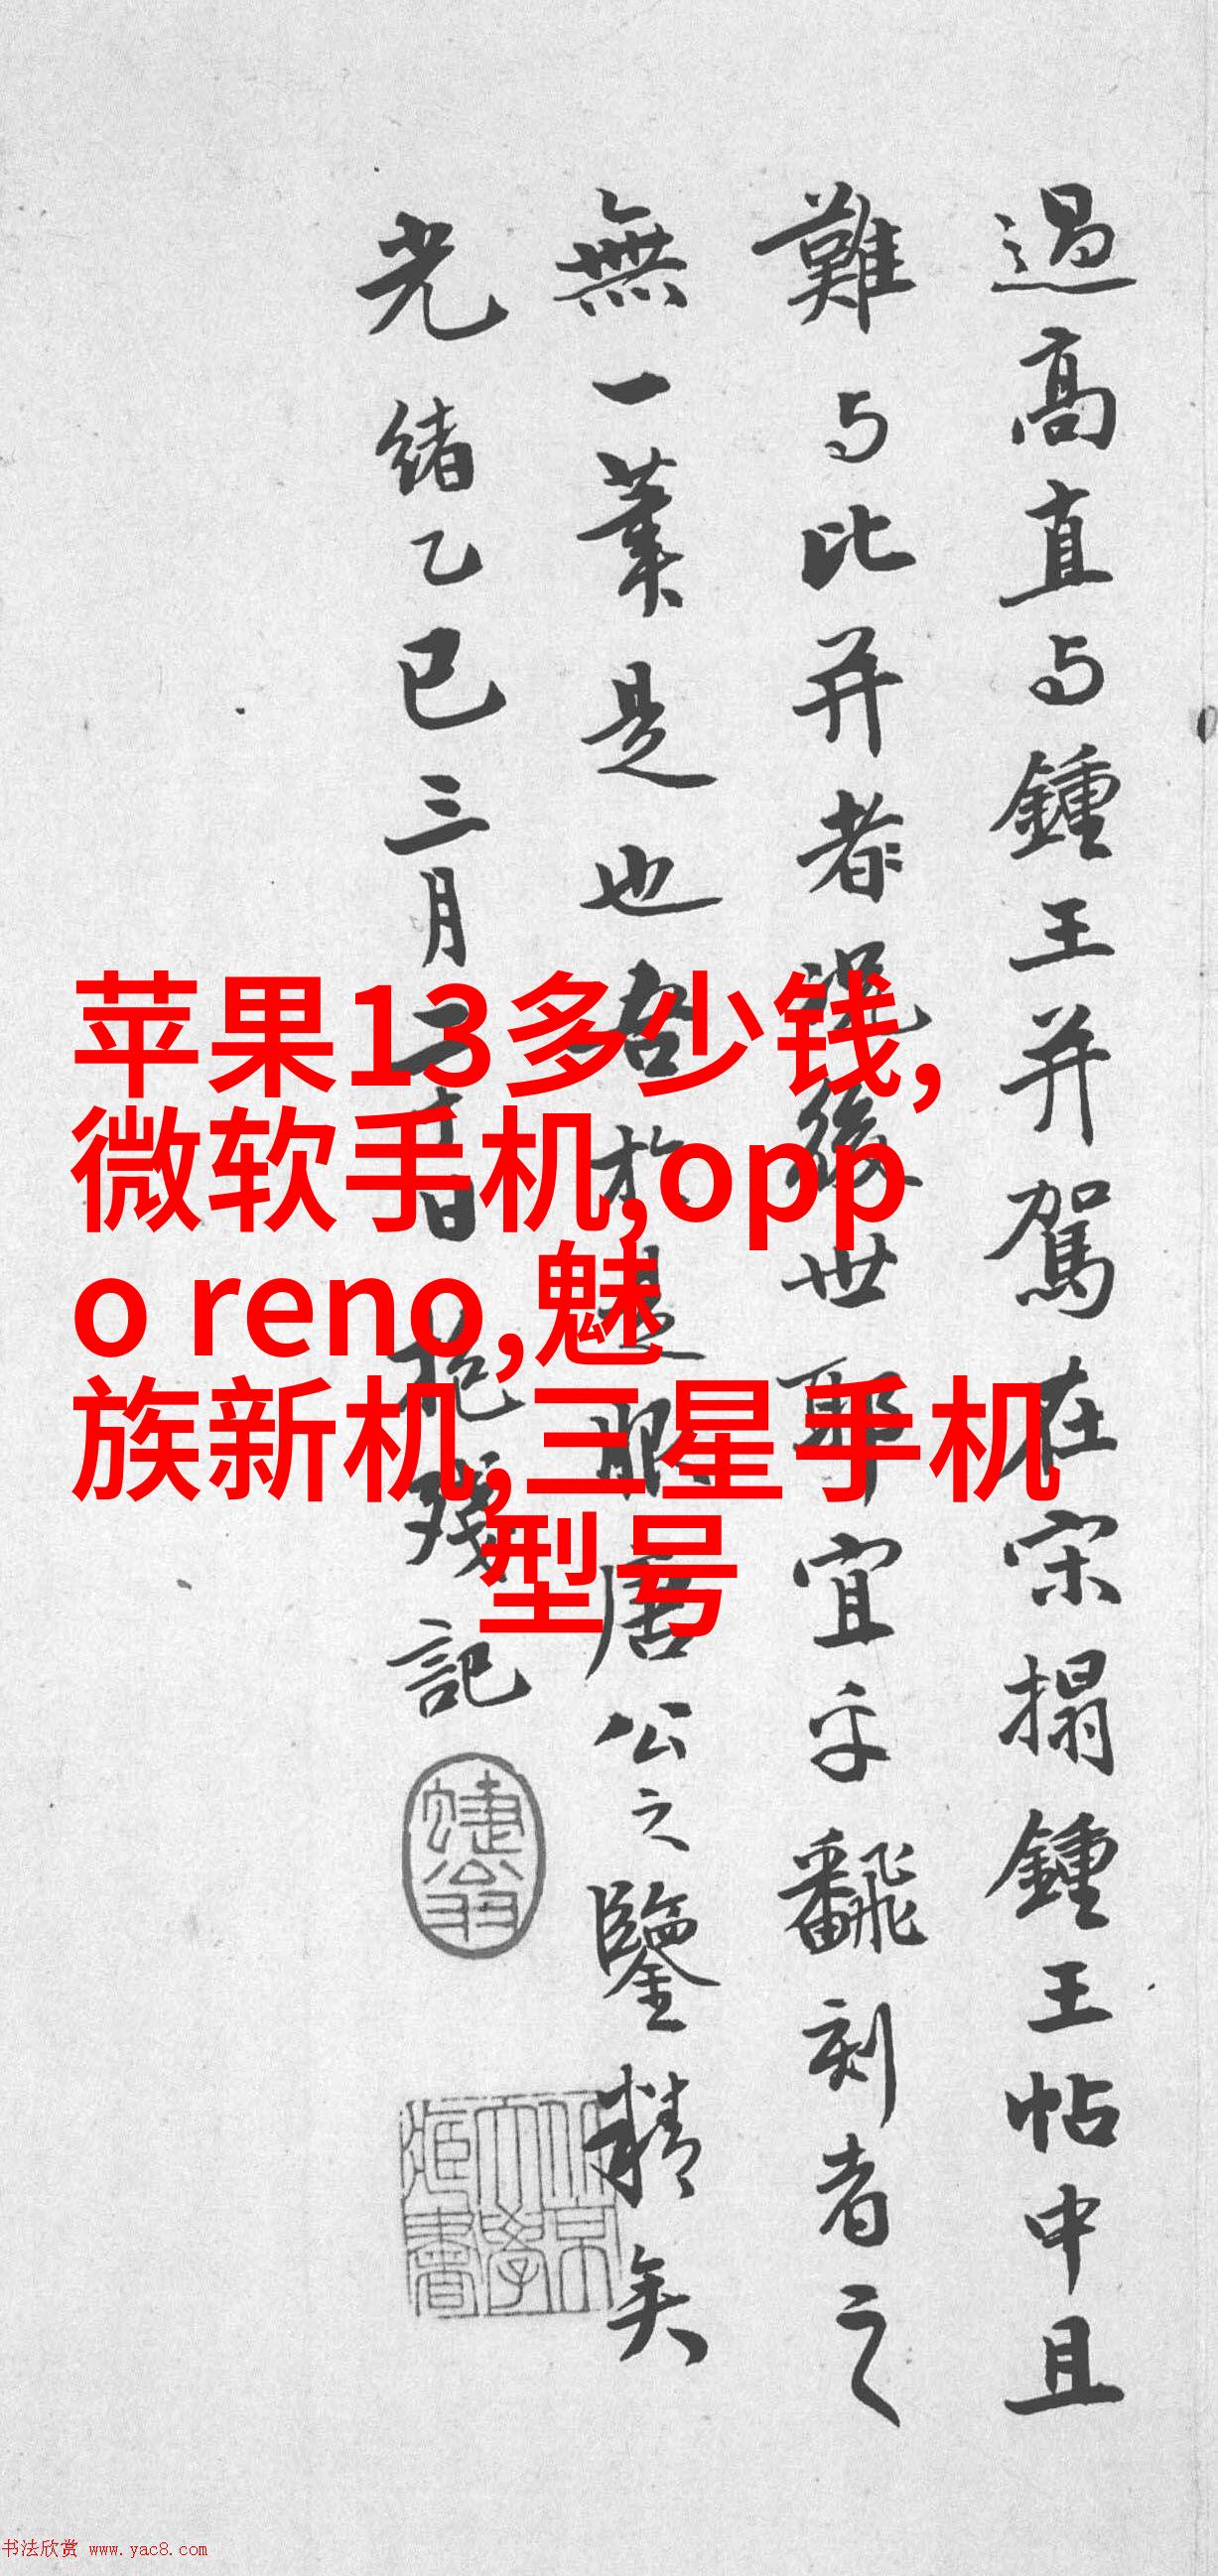 過高直与鍾王并駕在宋搨鍾王帖中且
難与比并者況後世耶宜乎翻刻者之
無一業是也吾於是服唐公之鑒精矣
光緒乙巳三月二十日 残記
苹果13多少钱,
微软手机,opp
o reno,魅
族新机,三星手机
型号
书法欣赏 www.yac8.com